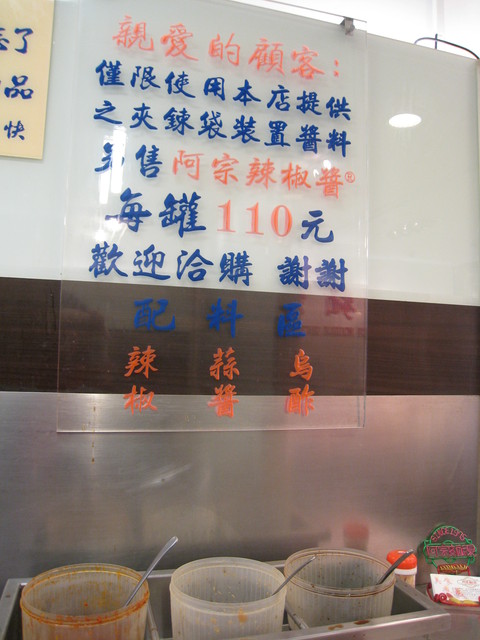 親愛的顧客:
僅限使用本店提供
之夾鍊袋裝置醬料
另售阿宗辣椒醬®
每罐110元
歡迎洽購 謝謝
配料區
辣椒
蒜醬
烏酢
品
快